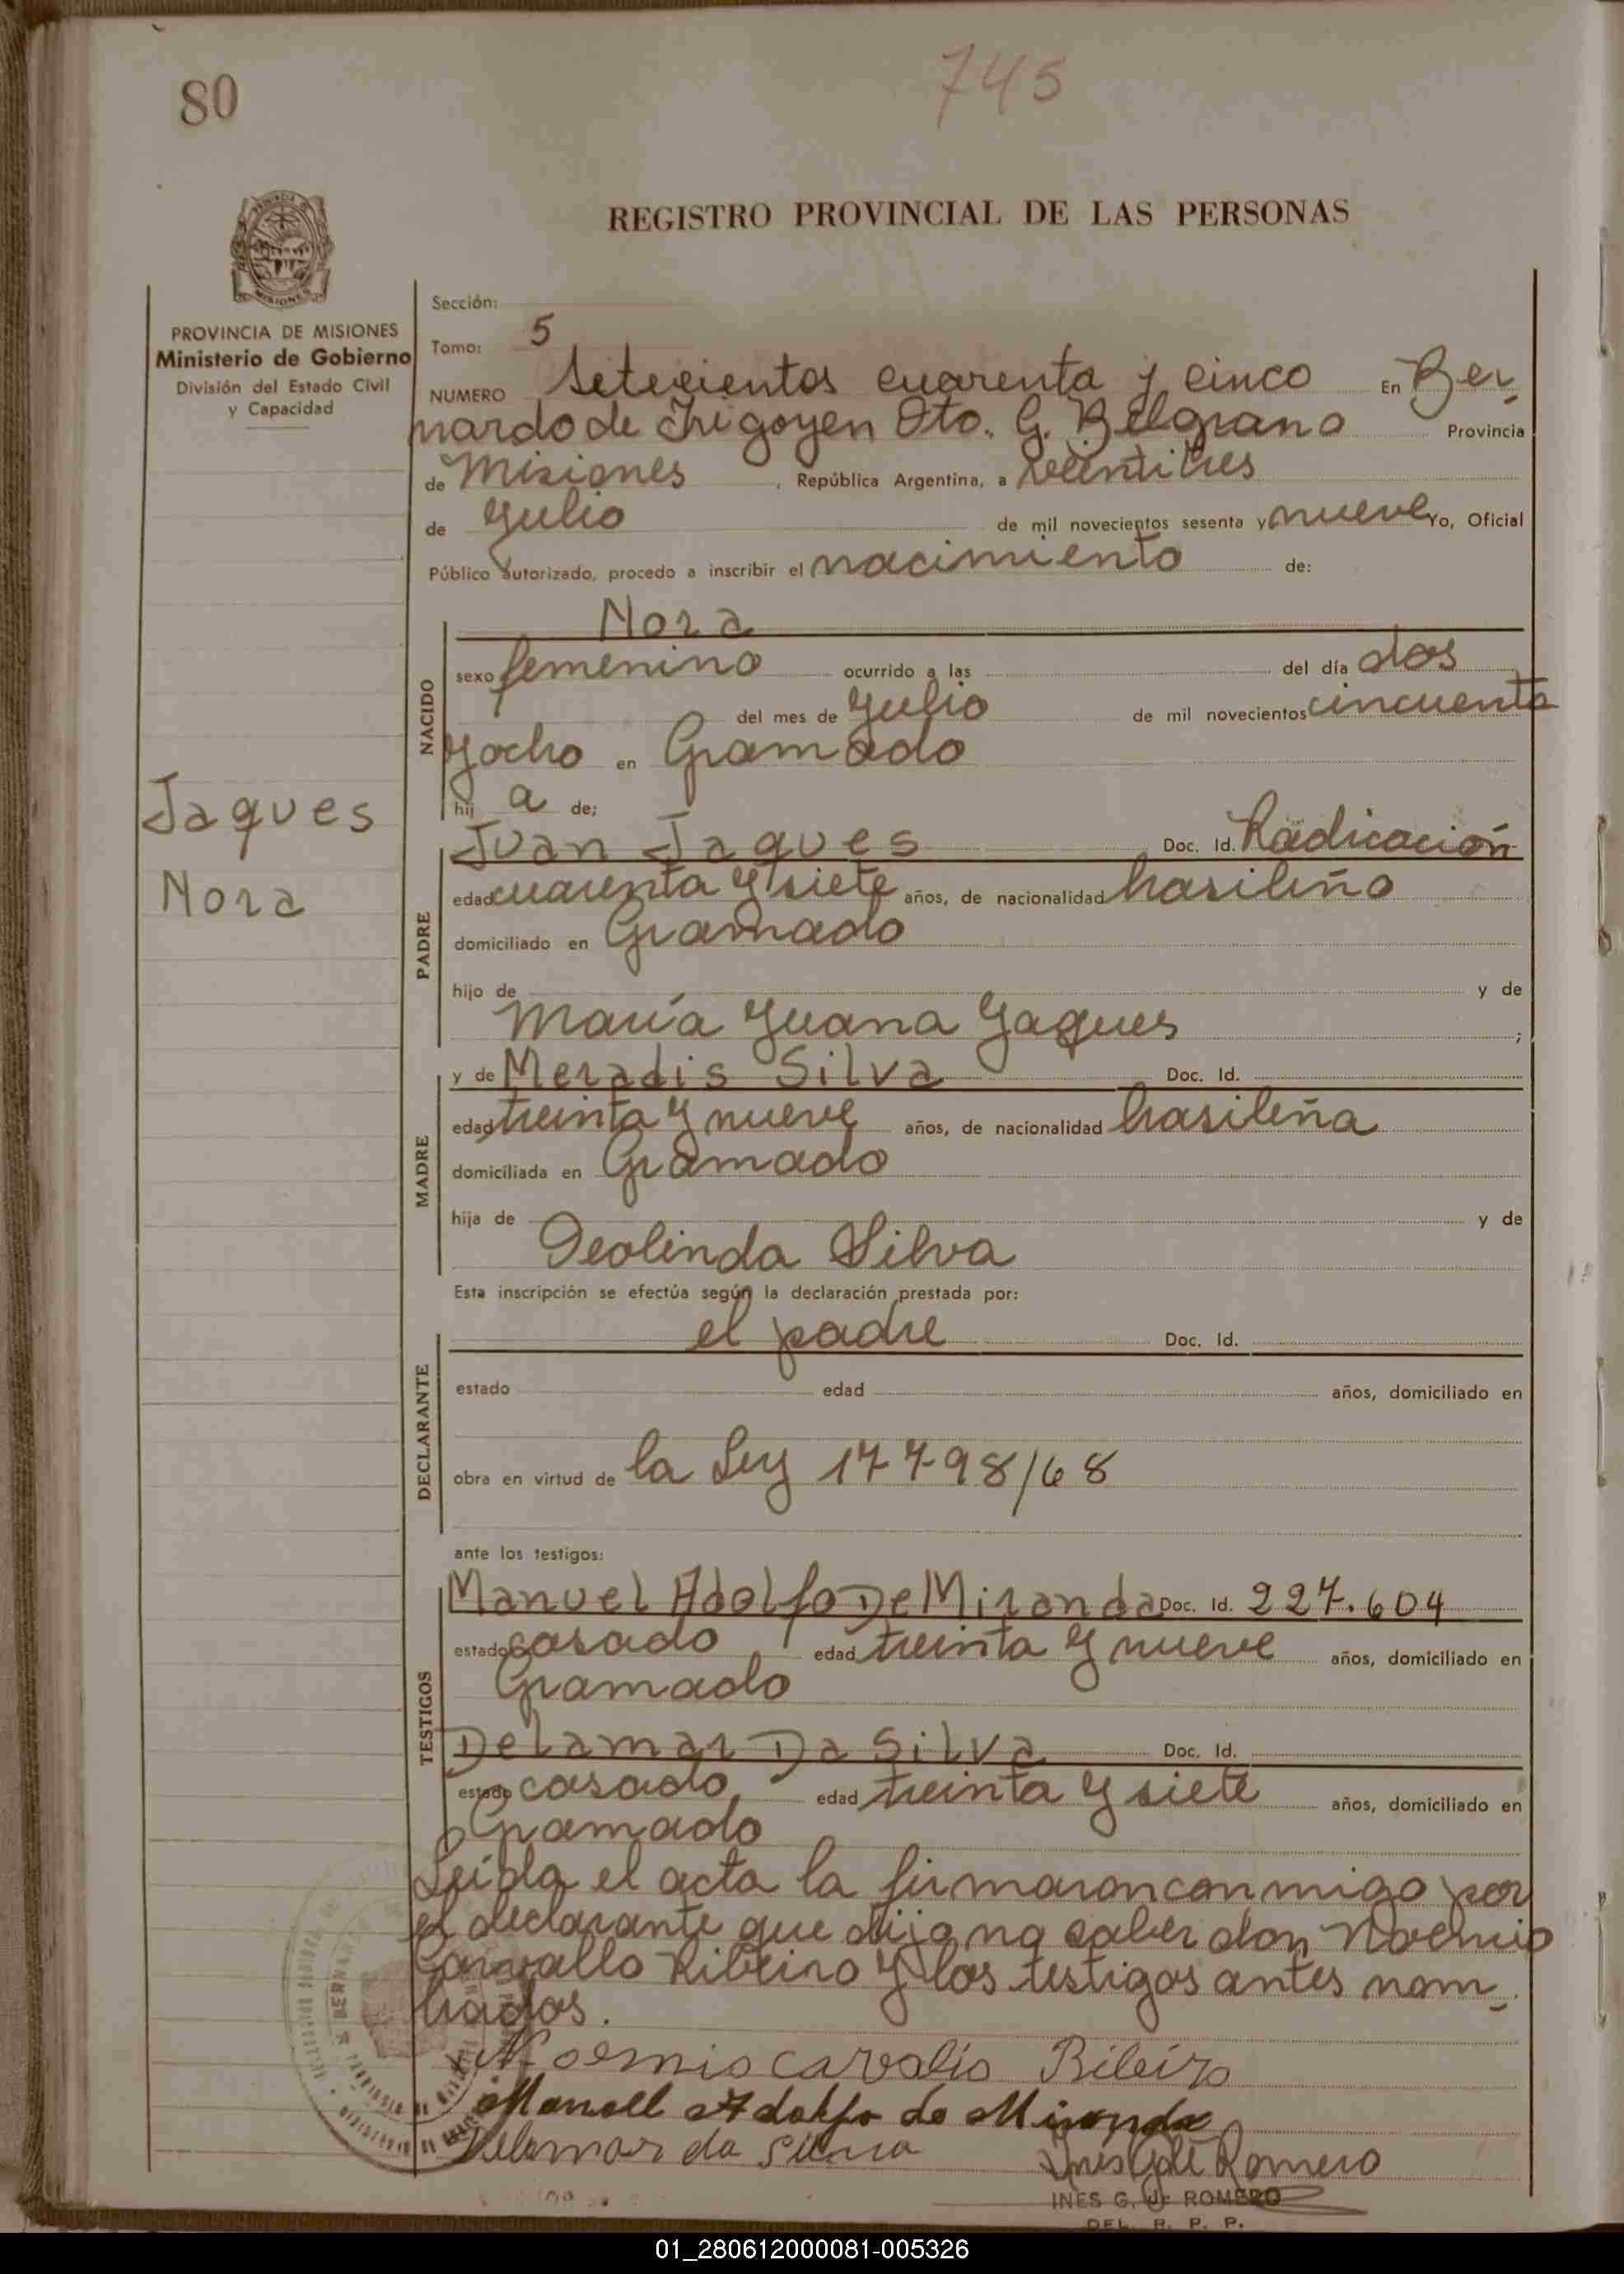 80
745
REGISTRO PROVINCIAL DE LAS PERSONAS
PROVINCIA DE MISIONES
Ministerio de Gobierno
División del Estado Civil
y Capacidad
Jaques
Nora
Sección:
Tomo: 5
NUMERO Setecientos cuarenta y cinco En Ber-
nardo de Irigoyen Dto. G. Belgrano Provincia
de Misiones, República Argentina, a veintitres
de Julio de mil novecientos sesenta y nueve Yo, Oficial
Público autorizado, procedo a inscribir el nacimiento de:
NACIDO
Nora
sexo femenino ocurrido a las del día dos
del mes de Julio de mil novecientos cincuenta
y ocho en Gramado
hij a de;
PADRE
Juan Jaques Doc. Id. Radicación
edad cuarenta y siete años, de nacionalidad brasileño
domiciliado en Gramado
hijo de y de
María Juana Jaques ;
MADRE
y de Meradis Silva Doc. Id.
edad treinta y nueve años, de nacionalidad brasileña
domiciliada en Gramado
hija de y de
Deolinda Silva
Esta inscripción se efectúa según la declaración prestada por:
DECLARANTE
el padre Doc. Id.
estado edad años, domiciliado en
obra en virtud de la Ley 17798/68
ante los testigos:
TESTIGOS
Manuel Adolfo De Miranda Doc. Id. 227.604
estado casado edad treinta y nueve años, domiciliado en
Gramado
Delamar Da Silva Doc. Id.
estado casado edad treinta y siete años, domiciliado en
Gramado
Leída el acta la firmaron conmigo por
el declarante que dijo no saber don Noemio
Carvallo Ribeiro y los testigos antes nom-
brados.
Noemio carvalio Ribeiro
Manoell Adolfo de Miranda
Delamar da Silva
Romero
INES G. DE ROMERO
DEL. R. P. P.
01_280612000081-005326